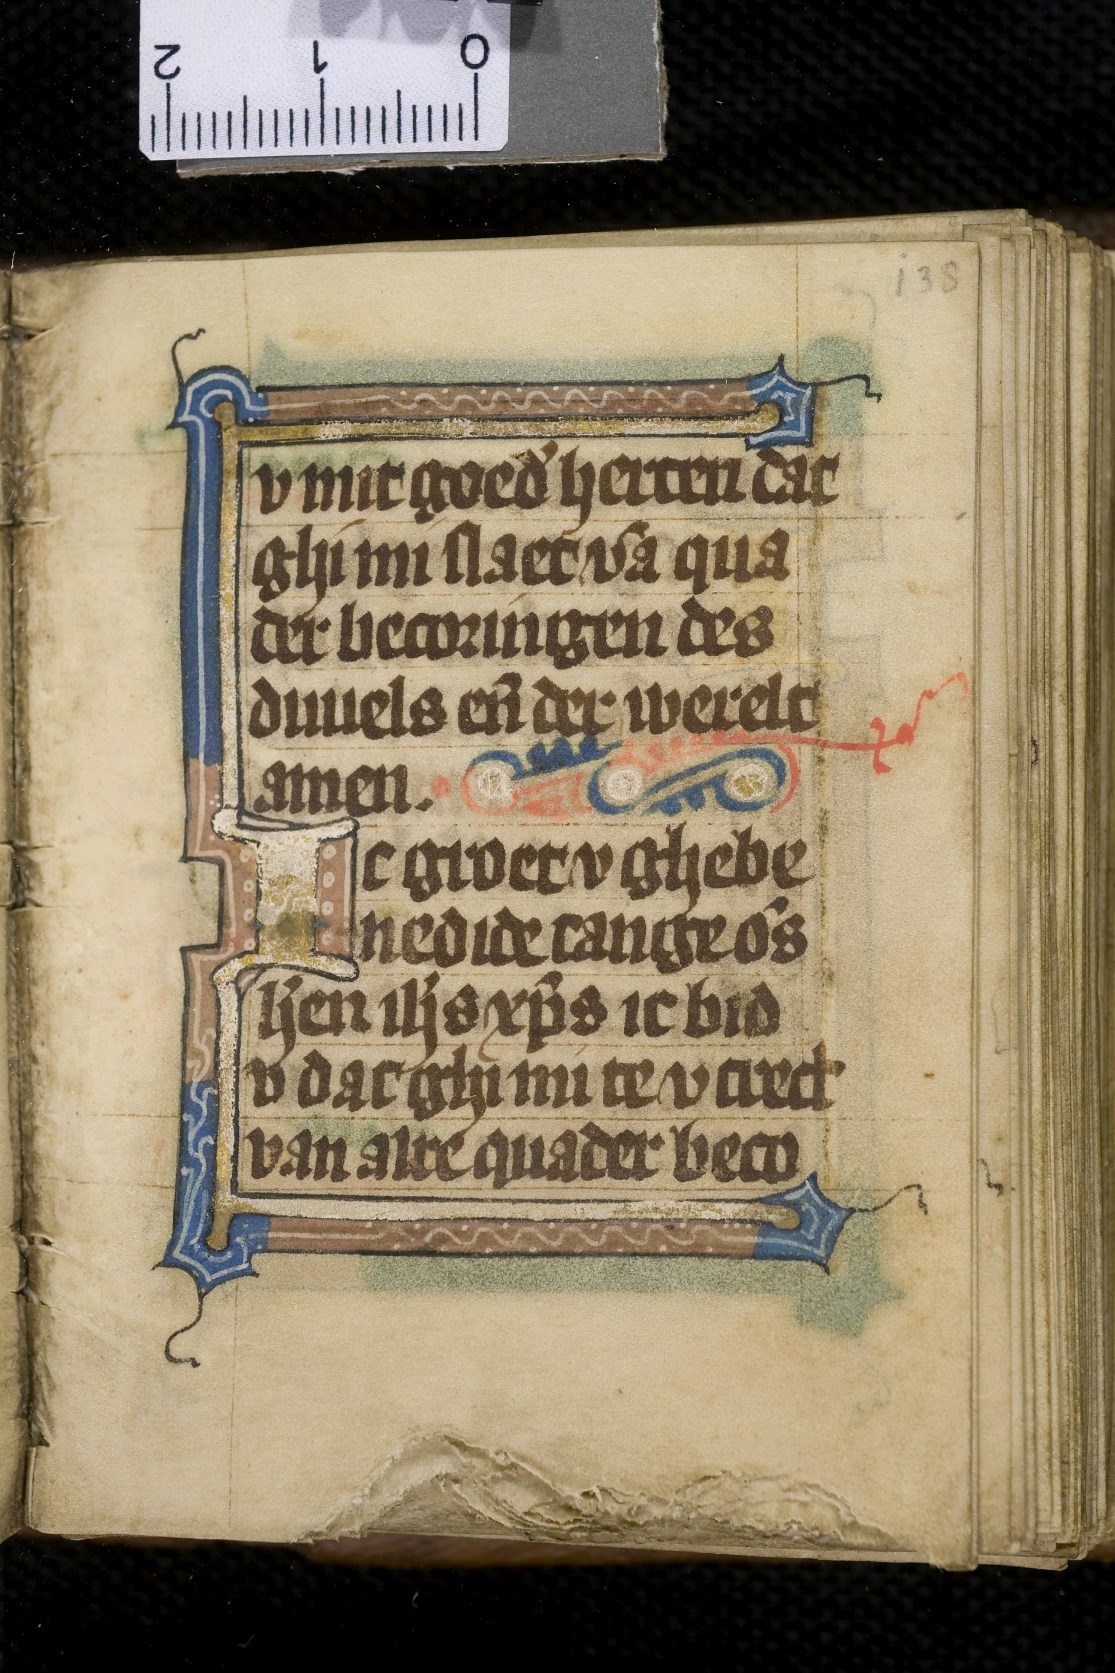 2 1 0
138
v mit goed' herten dat
ghi mi slaet vā qua
der becoringen des
duuels en̄ der werelt
amen.
Ic groet v ghebe
nedide tange ōs
h'en ih's xp̄s ic bid
v dat ghi mi te v trect
van alre quader beco